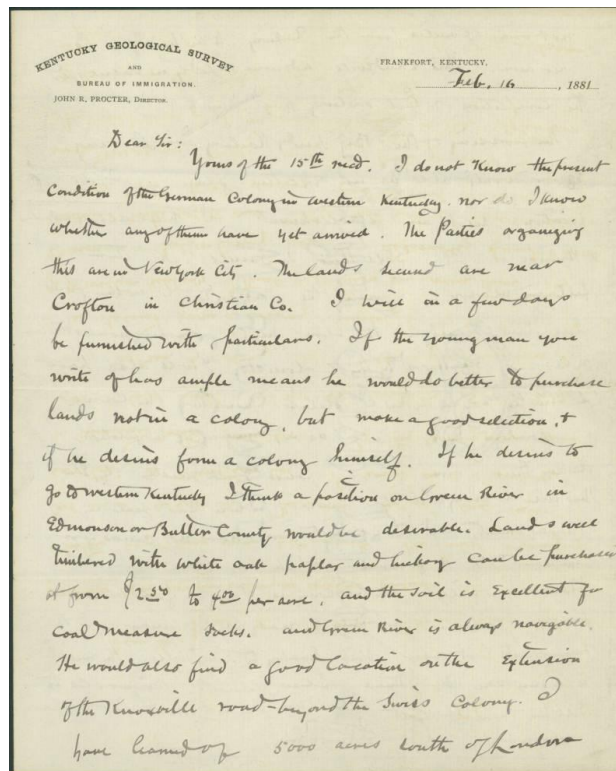 KENTUCKY GEOLOGICAL SURVEY
AND
BUREAU OF IMMIGRATION.
JOHN R. PROCTER, DIRECTOR.
FRANKFORT, KENTUCKY.
Feb, 16, 1881
Dear Sir:
Yours of the 15th recd. I do not Know the present
Condition of the German Colony in western Kentucky. nor do I know
whether any of them have yet arrived. The Parties organizing
this are in New York City. The lands secured are near
Crofton in Christian Co. I will in a few days
be furnished with particulars. If the young man you
write of has ample means he would do better to purchase
lands not in a colony, but make a good selection, &
if he desires form a colony himself. If he desires to
go to western Kentucky I think a position on Green River in
Edmonson or Butler County would be desirable. Lands well
timbered with white oak poplar and hickory can be purchased
at from $2.50 to 4.00 per acre, and the soil is Excellent for
Coal measure and Green River is always navigable.
He would also find a good location on the Extension
of the Knoxville road - beyond the Swiss Colony. I
have learned of 5000 acres south of London